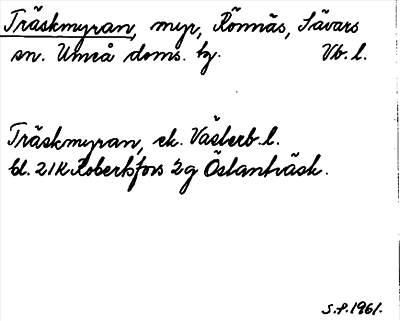 Träskmyran, myr, Rönnäs, Sävars
sn. Umeå doms. tg. Vb. l.
Träskmyran, ek. Västerb. l.
bl. 21K Robertsfors 2g Östanträsk.
S.P. 1961.